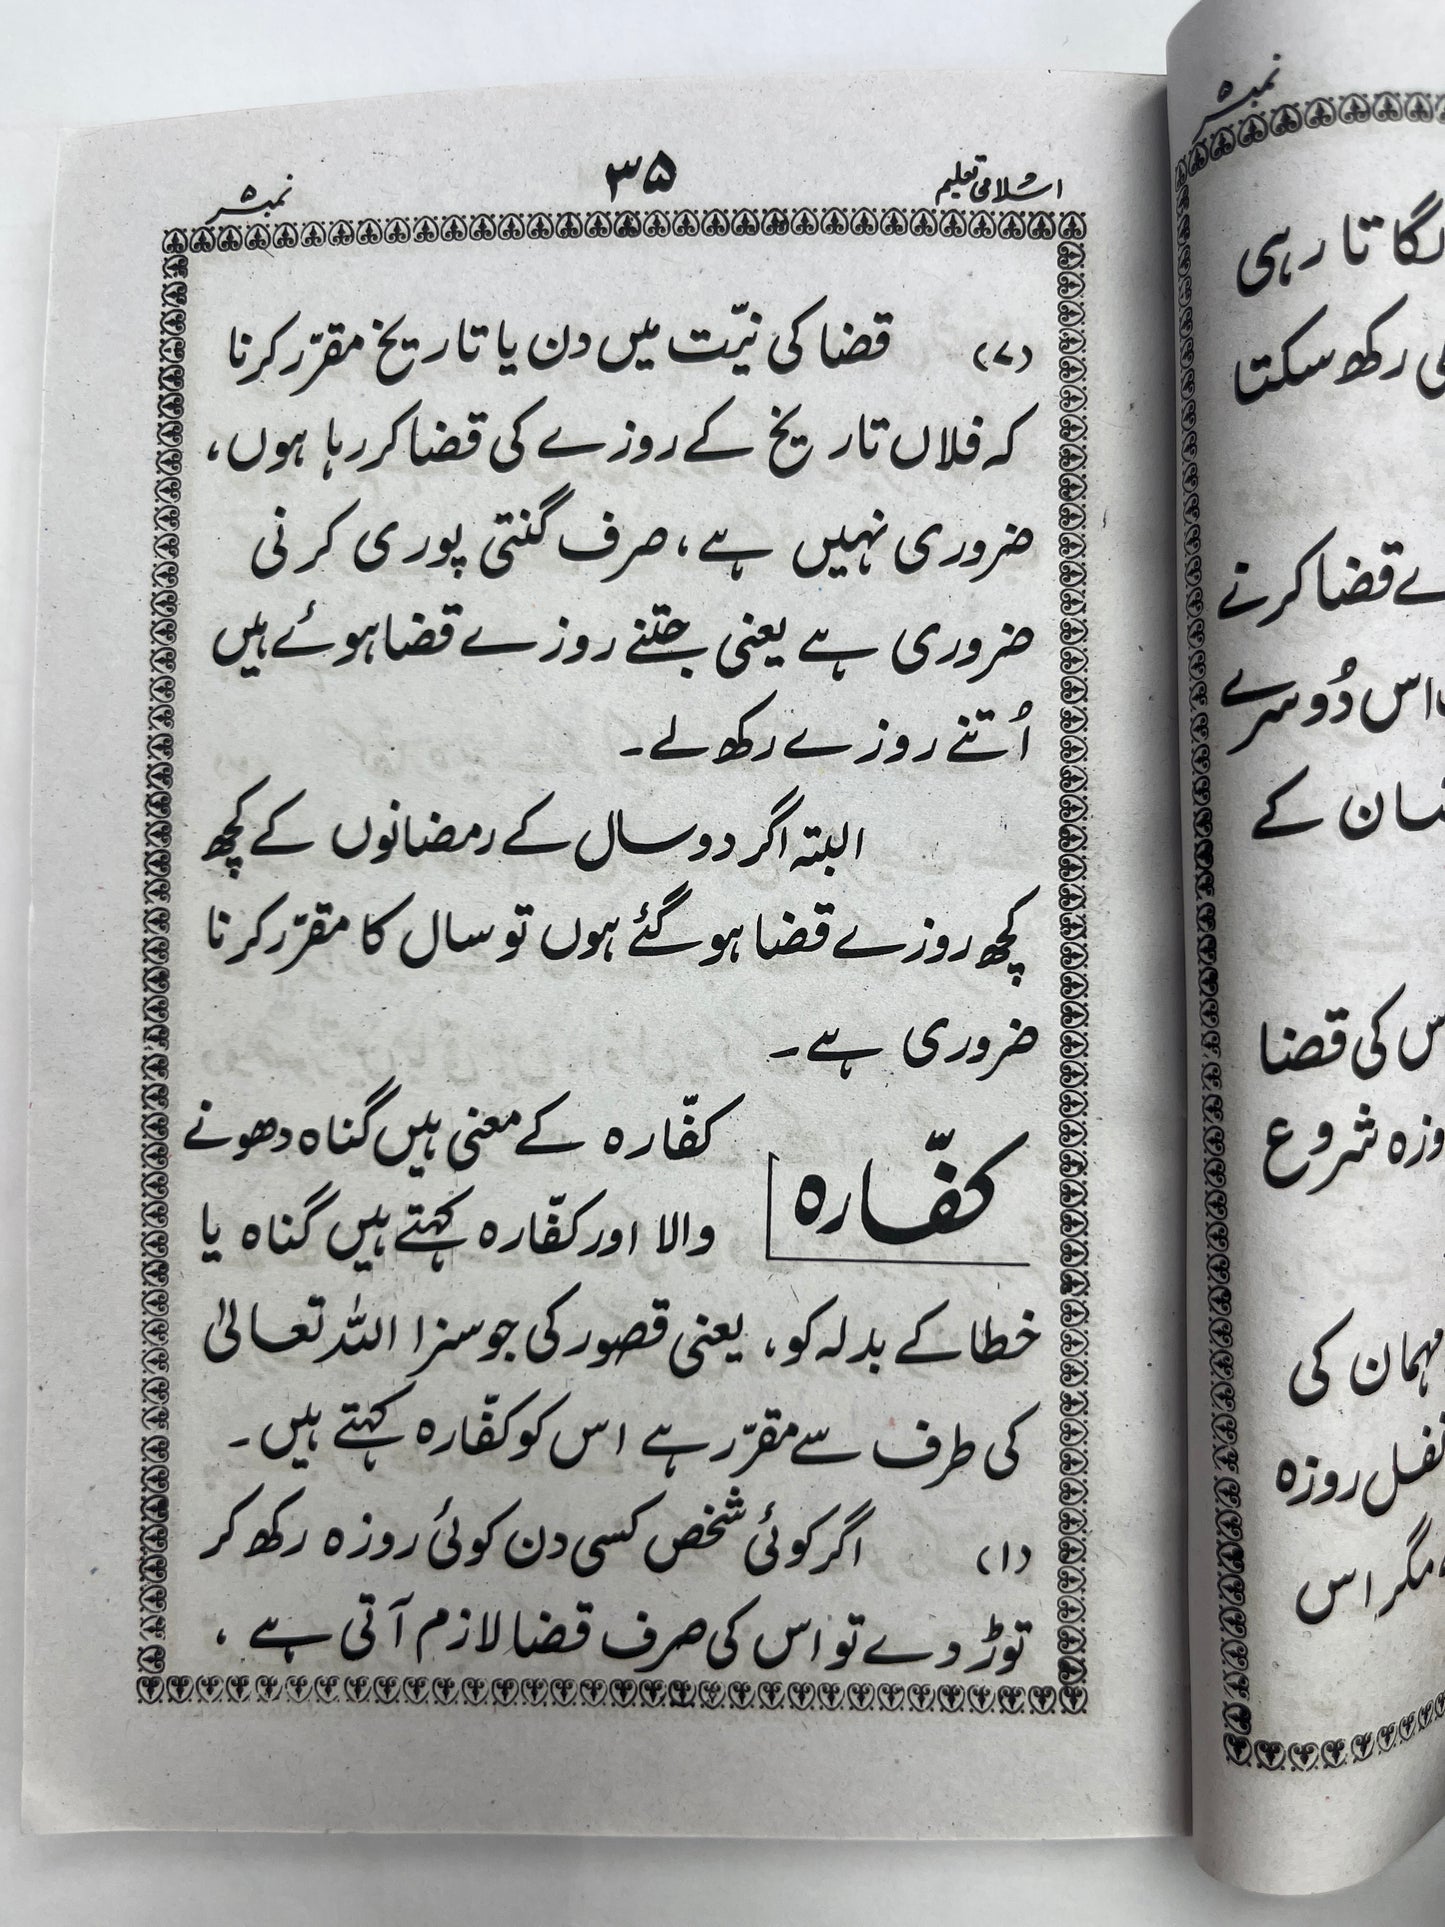 اسلامی تعلیم ۳۵ نمبر ۵
(۷) قضا کی نیّت میں دن یا تاریخ مقرّر کرنا
کہ فلاں تاریخ کے روزے کی قضا کر رہا ہوں،
ضروری نہیں ہے، صرف گنتی پوری کرنی
ضروری ہے یعنی جتنے روزے قضا ہوئے ہیں
اُتنے روزے رکھ لے۔
البتہ اگر دو سال کے رمضانوں کے کچھ
کچھ روزے قضا ہو گئے ہوں تو سال کا مقرّر کرنا
ضروری ہے۔
کفّارہ
کفّارہ کے معنی ہیں گناہ دھونے
والا اور کفّارہ کہتے ہیں گناہ یا
خطا کے بدلہ کو، یعنی قصور کی جو سزا اللہ تعالیٰ
کی طرف سے مقرّر ہے اس کو کفّارہ کہتے ہیں۔
(۱) اگر کوئی شخص کسی دن کوئی روزہ رکھ کر
توڑ دے تو اس کی صرف قضا لازم آتی ہے،
نمبر ۵
لگاتا رہی
رکھ سکتا
قضا کرنے
اس دُوسرے
کے
کی قضا
شروع
مہمان کی
نفل روزہ
مگر اس